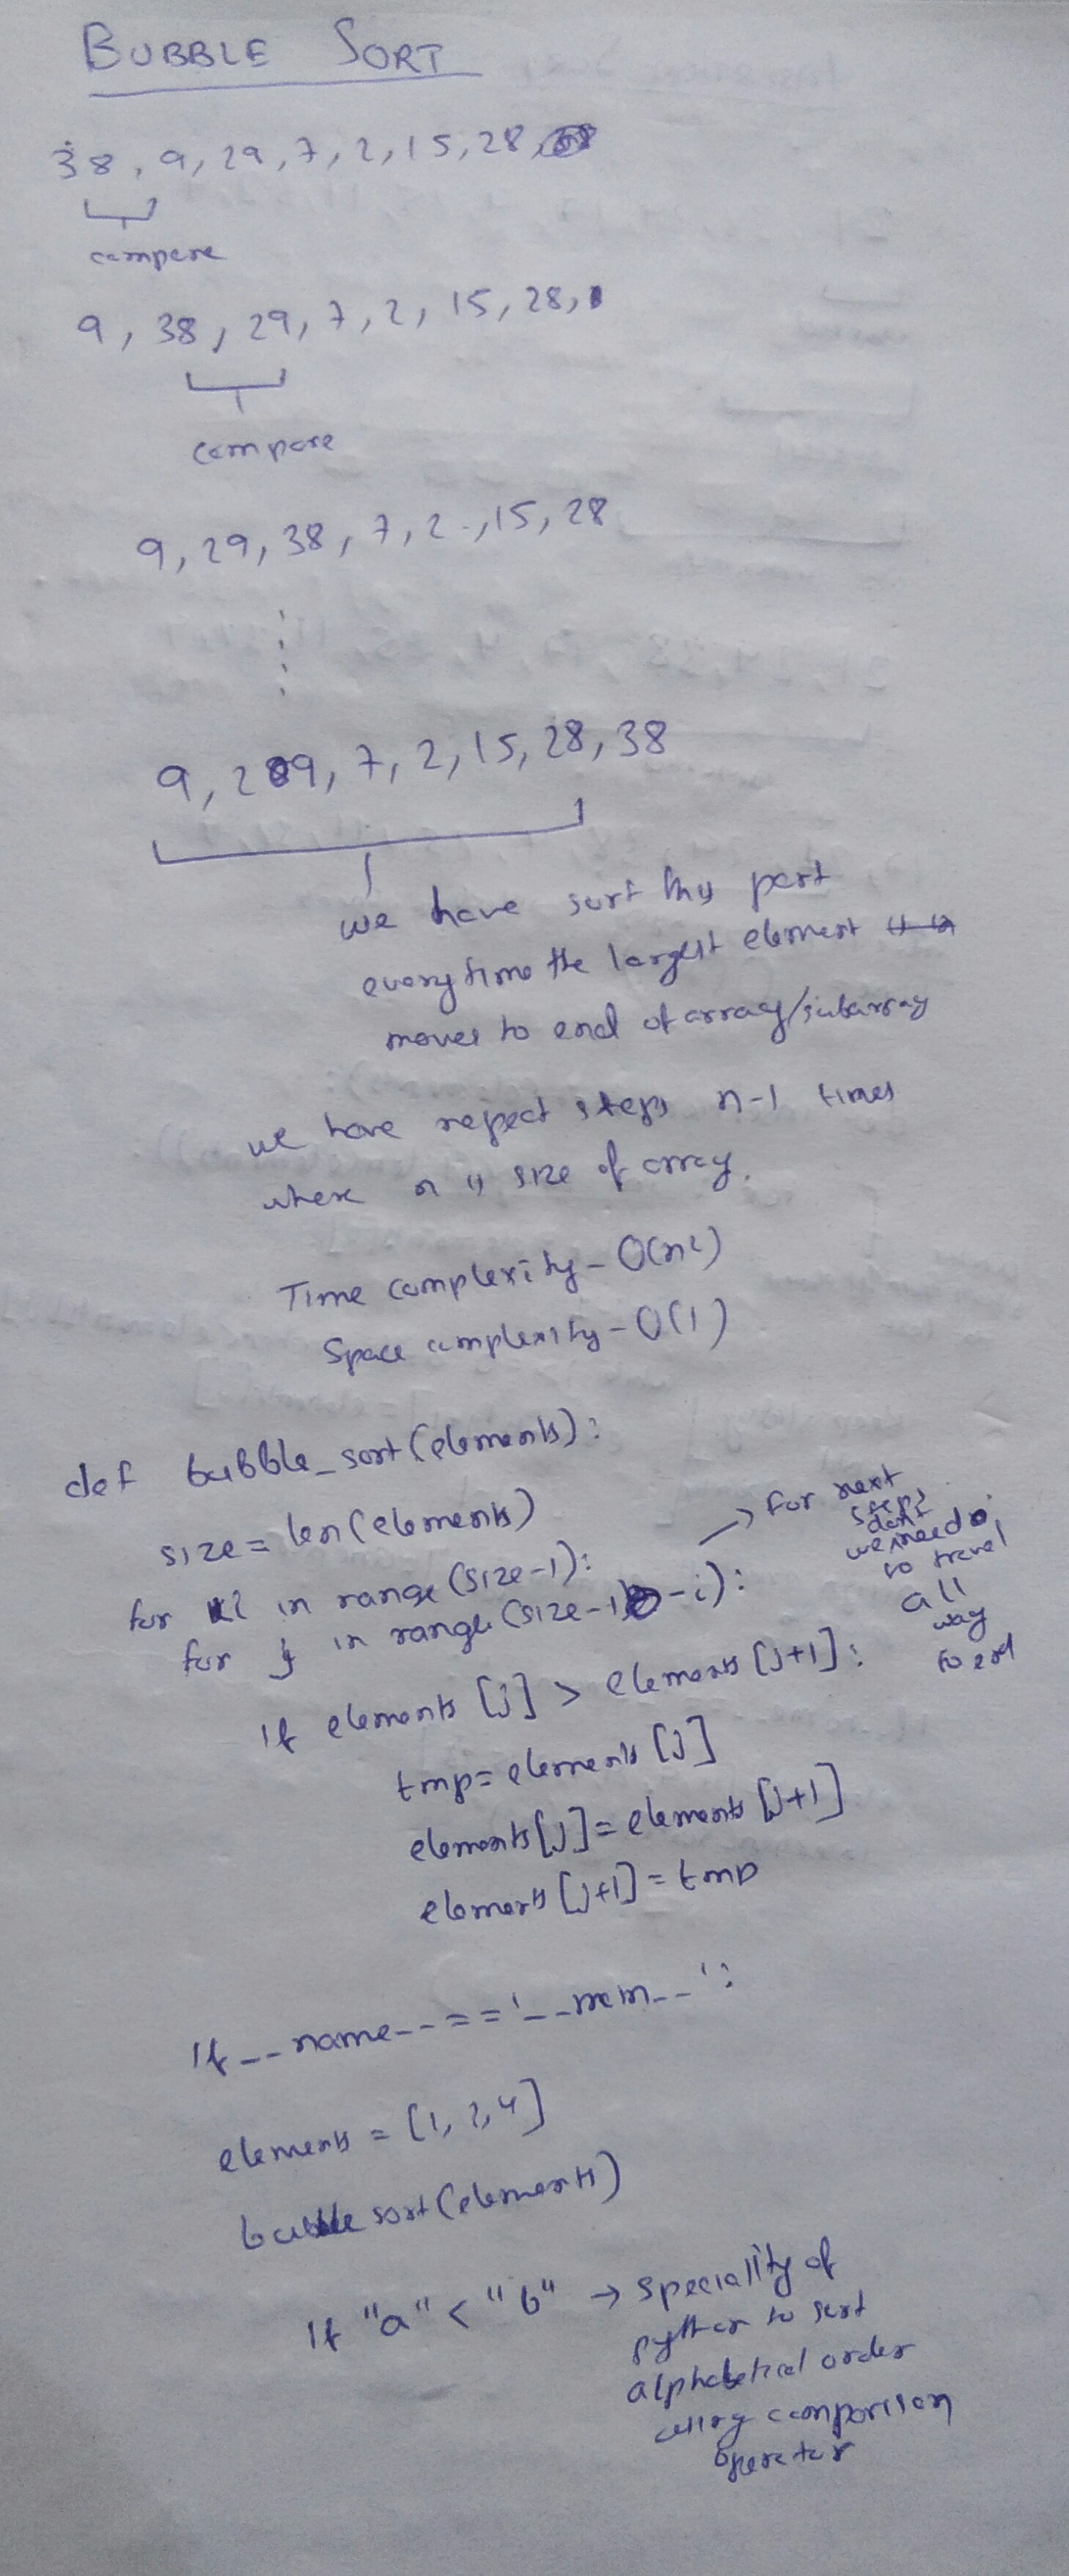 BUBBLE SORT
38, 9, 29, 7, 2, 15, 28,
compare
9, 38, 29, 7, 2, 15, 28,
compare
9, 29, 38, 7, 2, 15, 28
9, 29, 7, 2, 15, 28, 38
we have sort this part
everytime the largest element
moves to end of array/subarray
we have repeat steps n-1 times
where n is size of array.
Time complexity - O(n2)
Space complexity - O(1)
def bubble_sort(elements):
size = len(elements)
for i in range(size-1):
for j in range(size-1-i):
→ for next
steps
don't
we need
to travel
all
way
to end
if elements [j] > elements [j+1]:
tmp = elements [j]
elements[j] = elements [j+1]
elements [j+1] = tmp
if __name__ == '__main__':
elements = [1, 2, 4]
bubble sort (elements)
If "a" < "b" → speciality of
python to sort
alphabetical order
using comparison
operator